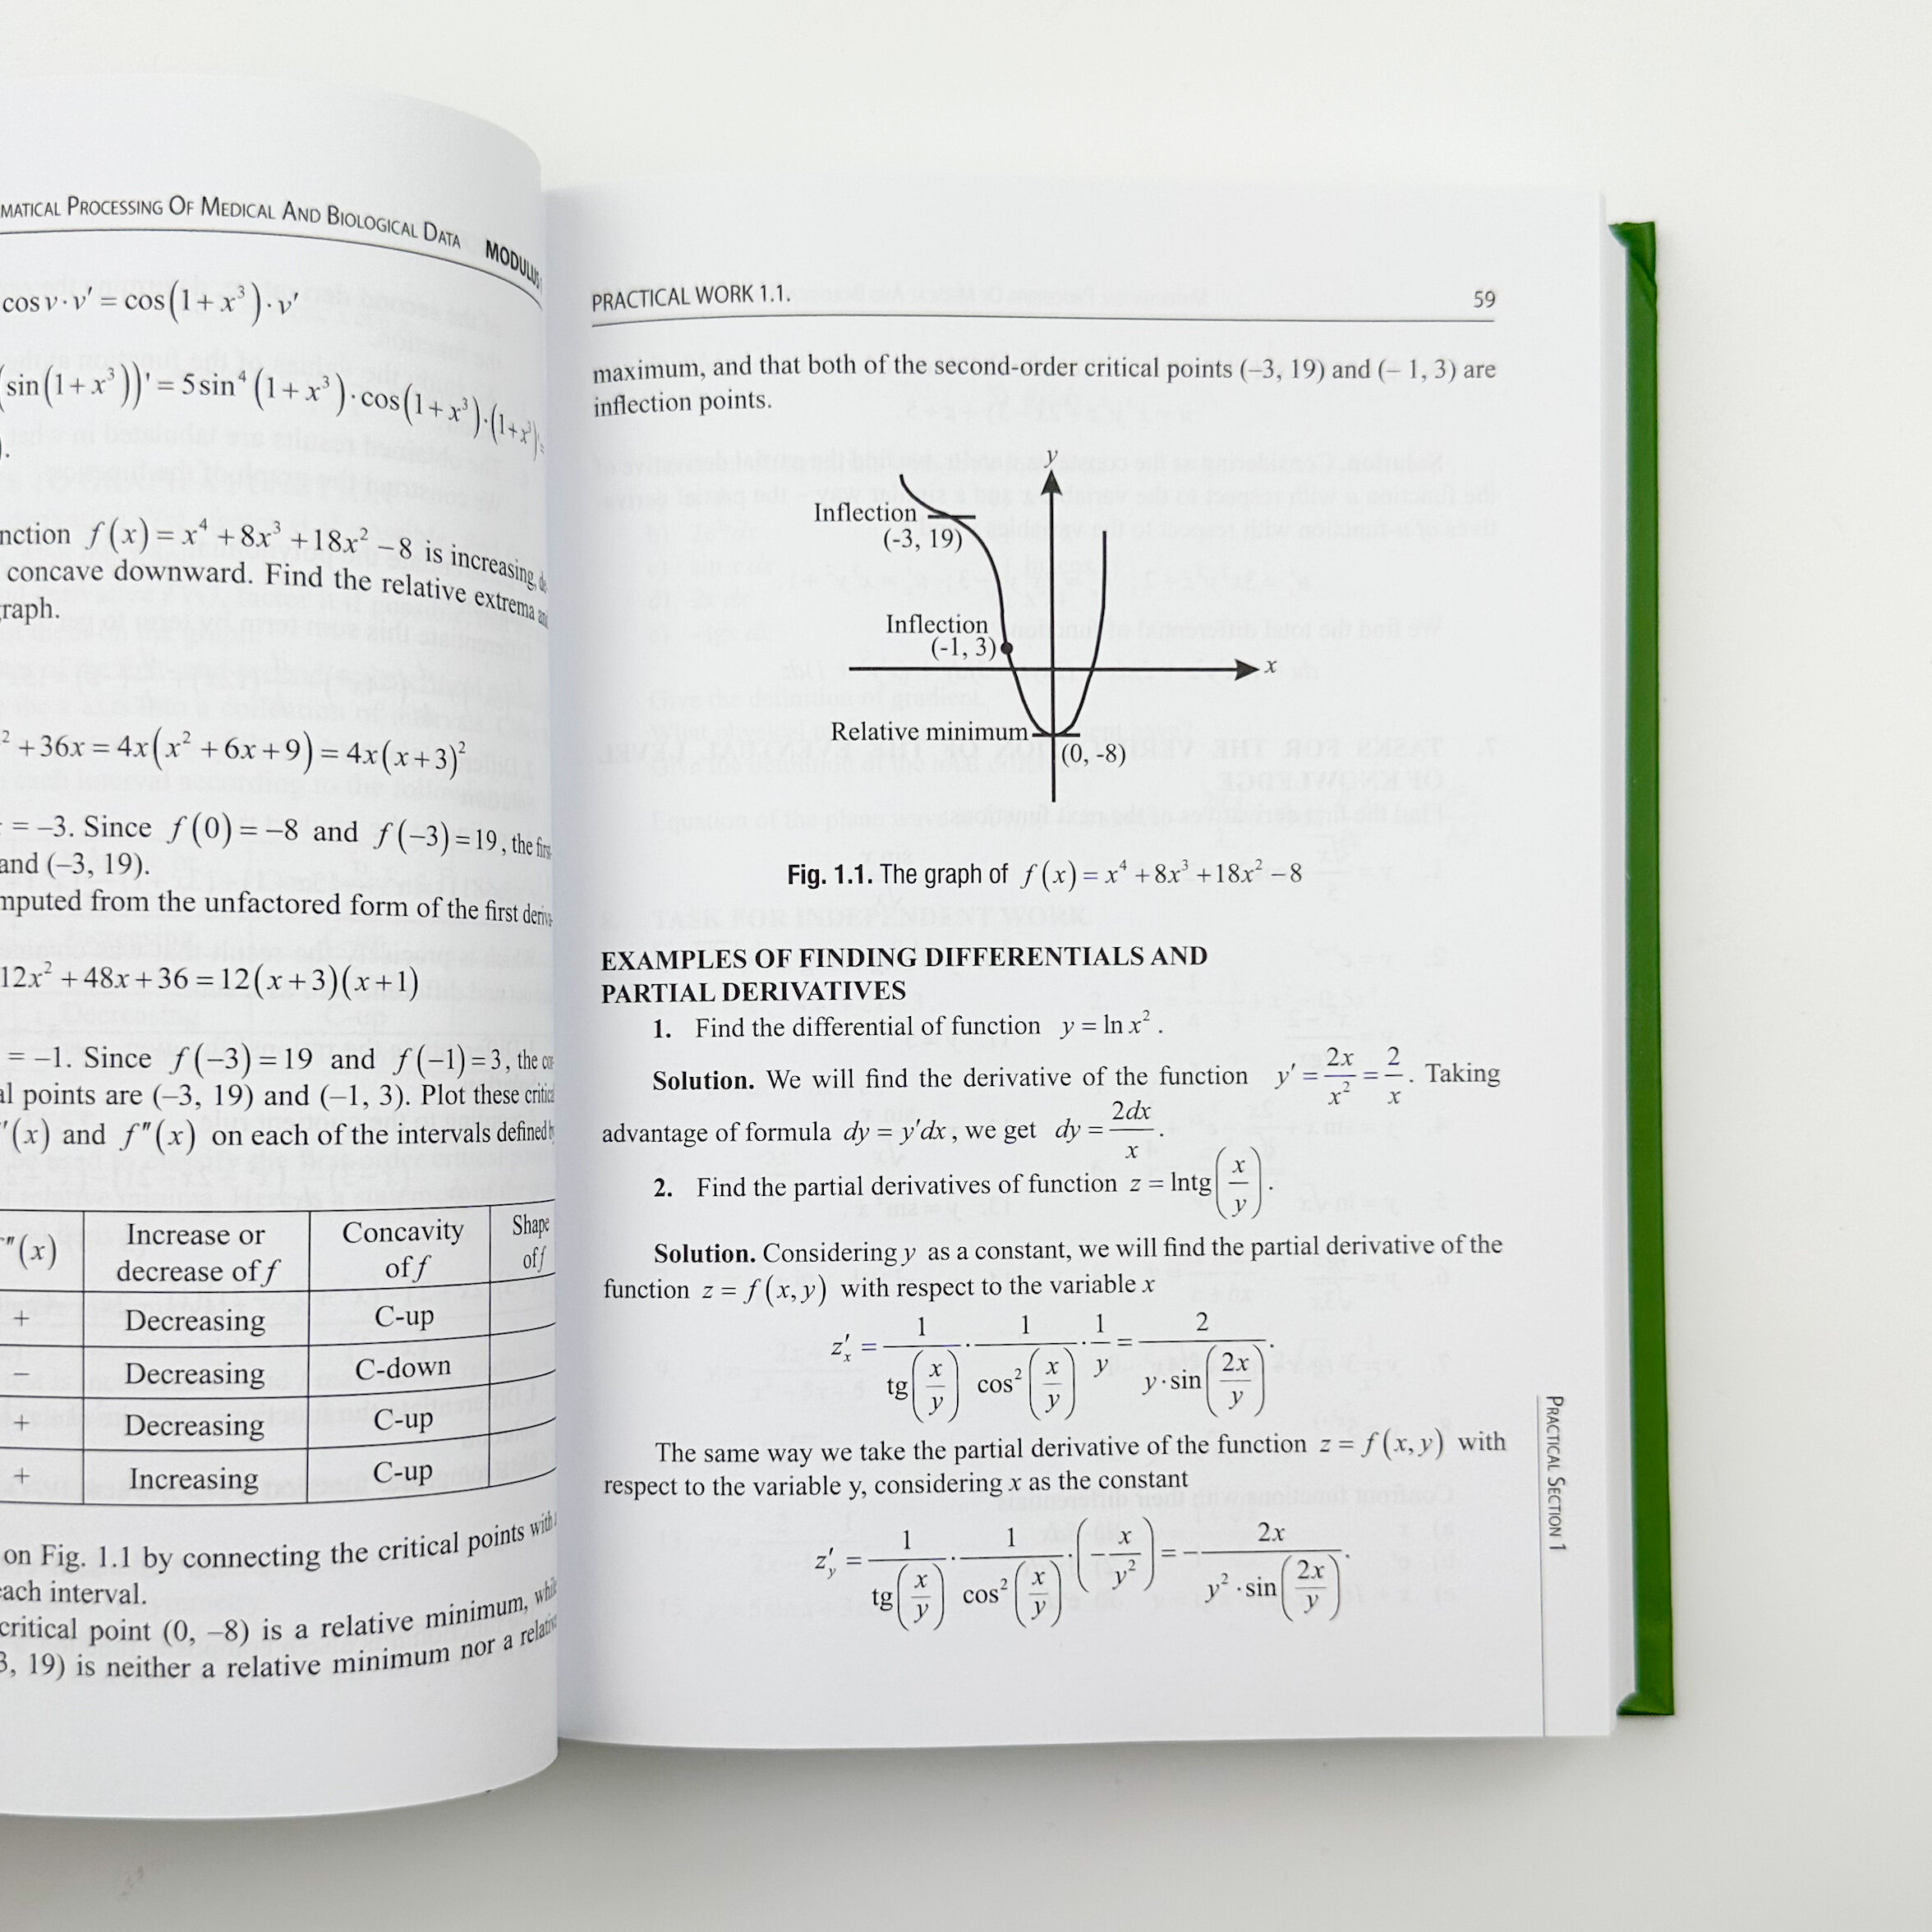 MATICAL PROCESSING OF MEDICAL AND BIOLOGICAL DATA MODULUS
cos v · v′ = cos(1 + x³) · v′
(sin(1 + x³))′ = 5 sin⁴(1 + x³) · cos(1 + x³) · (1 + x³)′ =
).
nction f(x) = x⁴ + 8x³ + 18x² − 8 is increasing,
concave downward. Find the relative extrema
raph.
² + 36x = 4x(x² + 6x + 9) = 4x(x + 3)²
= −3. Since f(0) = −8 and f(−3) = 19, the
and (−3, 19).
mputed from the unfactored form of the first
12x² + 48x + 36 = 12(x + 3)(x + 1)
= −1. Since f(−3) = 19 and f(−1) = 3, the
al points are (−3, 19) and (−1, 3). Plot these
′(x) and f″(x) on each of the intervals defined
f″(x) Increase or decrease of f Concavity of f Shape of f
+ Decreasing C-up
− Decreasing C-down
+ Decreasing C-up
+ Increasing C-up
on Fig. 1.1 by connecting the critical points with
each interval.
critical point (0, −8) is a relative minimum,
3, 19) is neither a relative minimum nor a
PRACTICAL WORK 1.1. 59
maximum, and that both of the second-order critical points (−3, 19) and (− 1, 3) are
inflection points.
y
Inflection
(-3, 19)
Inflection
(-1, 3)
x
Relative minimum
(0, -8)
Fig. 1.1. The graph of f(x) = x⁴ + 8x³ + 18x² − 8
EXAMPLES OF FINDING DIFFERENTIALS AND
PARTIAL DERIVATIVES
1. Find the differential of function y = ln x².
Solution. We will find the derivative of the function y′ = 2x/x² = 2/x. Taking
advantage of formula dy = y′dx, we get dy = 2dx/x.
2. Find the partial derivatives of function z = lntg(x/y).
Solution. Considering y as a constant, we will find the partial derivative of the
function z = f(x, y) with respect to the variable x
z′ₓ = 1/tg(x/y) · 1/cos²(x/y) · 1/y = 2/(y · sin(2x/y)).
The same way we take the partial derivative of the function z = f(x, y) with
respect to the variable y, considering x as the constant
z′y = 1/tg(x/y) · 1/cos²(x/y) · (−x/y²) = −2x/(y² · sin(2x/y)).
PRACTICAL SECTION 1